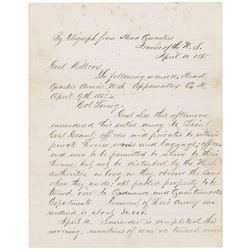 By Telegraph from Head Quarters
Armies of the U.S.
April 10 1865
Genl Willcox
The following received, Head
Quarters Armies U.S. Appomattox C. H.
April 9th 1865
Genl Lee this afternoon
surrendered this entire army to Lieut
Genl Grant, officers and privates to retain
private horses and baggage, officers
and men to be permitted to return to their
homes, but not be disturbed by the U.S.
authorities, as long as they observe the laws
where they reside, all public property to be
over to Ordnance and Quartermaster
Departments. Remnant of Lee's Army
surrendered is about
April 10 Surrender is completed this
morning, turned over